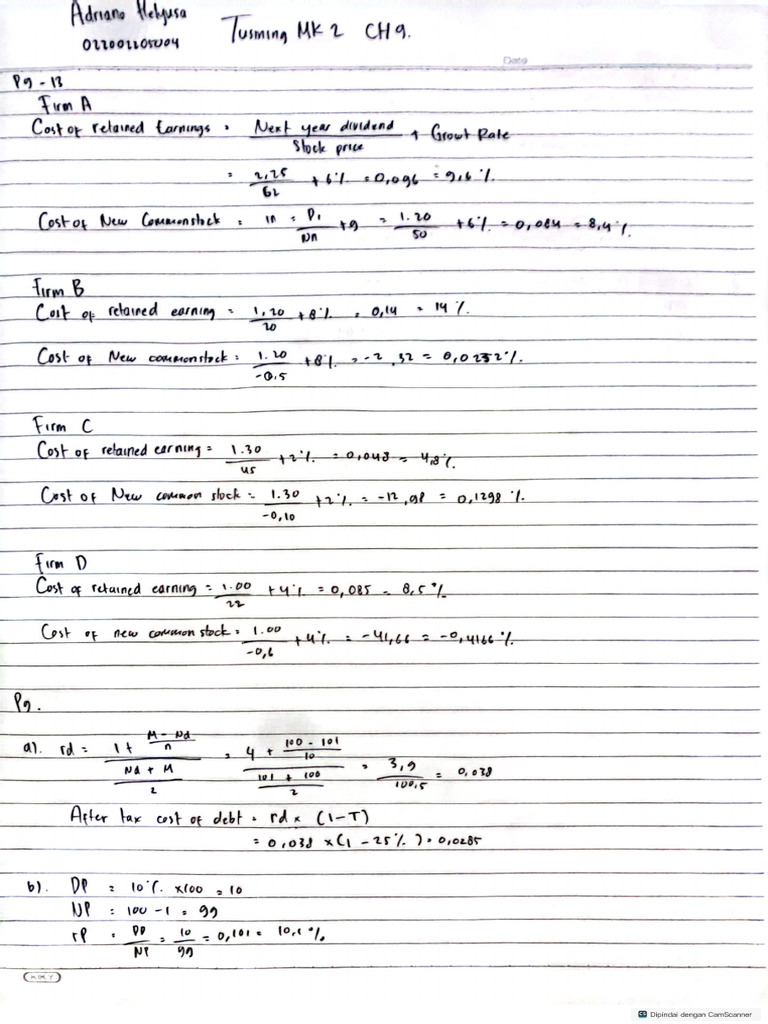 Adriano Hekyusa
022002205004
Tusming MK 2 CH 9.
Date
P9 - 13
Firm A
Cost of retained Earnings = Next year dividend / Stock price + Growt Rate
= 2,25 / 62 + 6% = 0,096 = 9,6 %.
Cost of New Commonstock = rn = D1 / Nn + g = 1.20 / 50 + 6% = 0,084 = 8,4%.
Firm B
Cost of retained earning = 1,20 / 20 + 8% = 0,14 = 14 %.
Cost of New commonstock = 1.20 / -0,5 + 8% = -2,32 = 0,0232%.
Firm C
Cost of retained earning = 1.30 / 45 + 2% = 0,048 = 4,8%.
Cost of New common stock = 1.30 / -0,10 + 2% = -12,98 = 0,1298 %.
Firm D
Cost of retained earning = 1.00 / 22 + 4% = 0,085 = 8,5 %
Cost of new common stock = 1.00 / -0,6 + 4% = -41,66 = -0,4166 %.
P9.
a). rd = 1 + M - Nd / n / Nd + M / 2 = 4 + 100 - 101 / 10 / 101 + 100 / 2 = 3,9 / 100,5 = 0,038
After tax cost of debt = rd x (1 - T)
= 0,038 x (1 - 25%) = 0,0285
b). DP = 10% x 100 = 10
NP = 100 - 1 = 99
rP = DP / NP = 10 / 99 = 0,101 = 10,1 %
KIKY
Dipindai dengan CamScanner